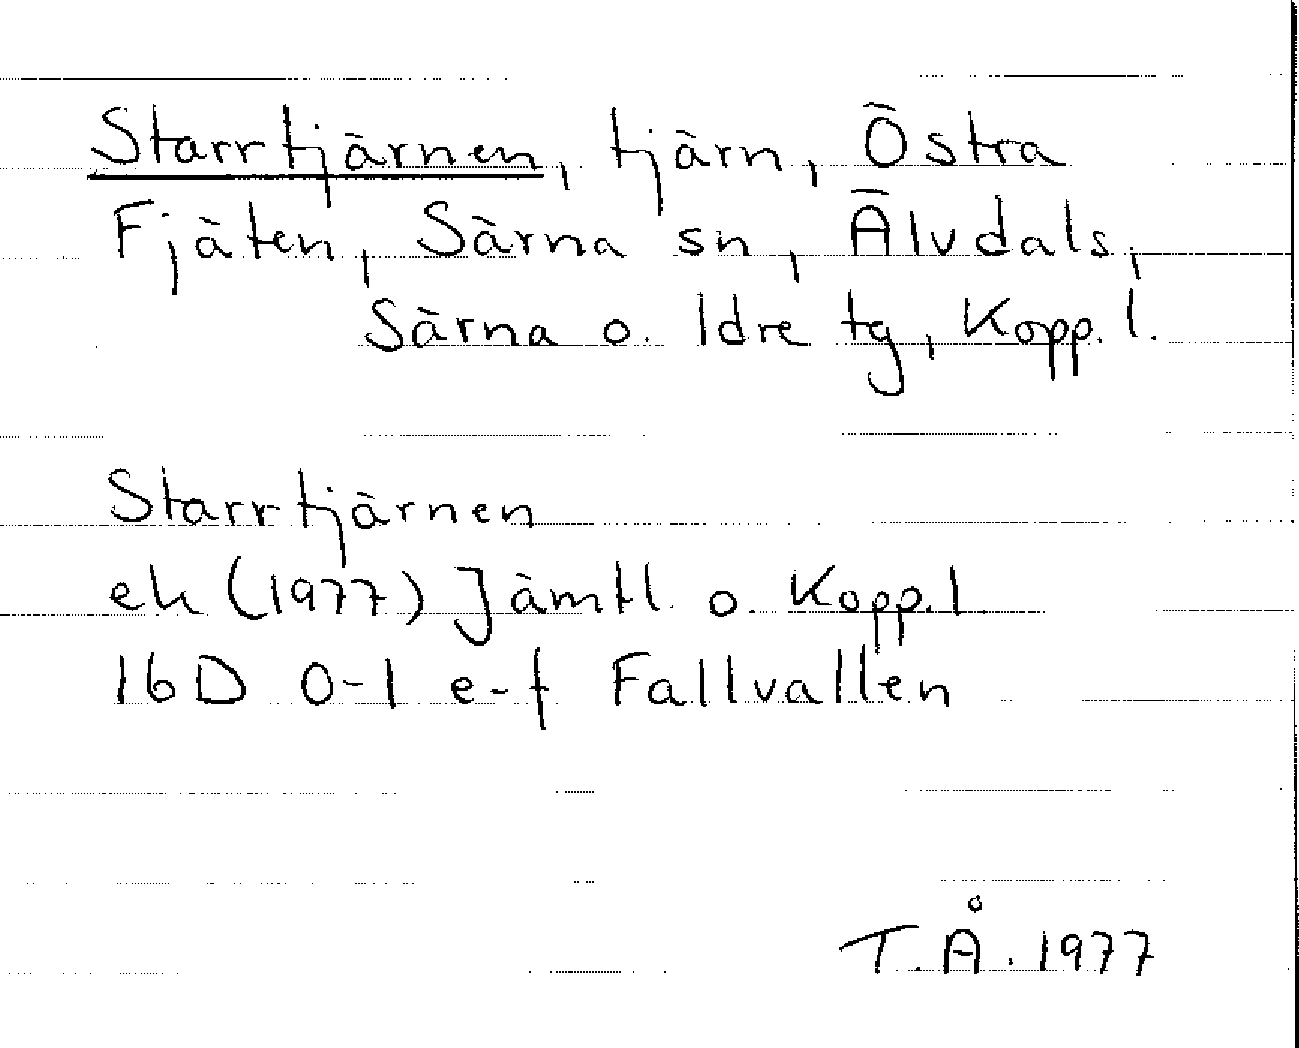 Starrtjärnen, tjärn, Östra
Fjäten, Särna sn, Älvdals,
Särna o. Idre tg, Kopp. l.
Starrtjärnen
ek (1977) Jämtl. o. Kopp. l.
16D 0-1 e-f Fallvallen
T.Å. 1977